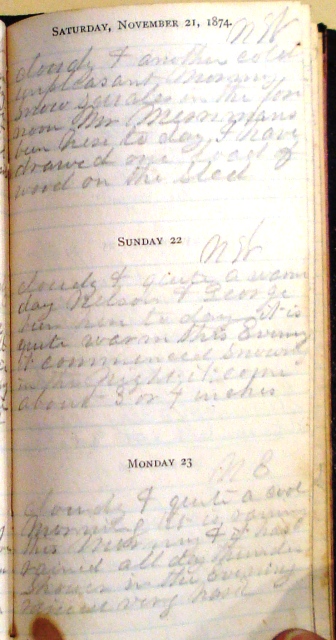 SATURDAY, NOVEMBER 21, 1874.
N W
cloudy & another cold
unpleasant morning
snow squales in the fore
noon Mr Merrimans
ben here to day I have
drawed one load of
wood on the sled
SUNDAY 22
N W
cloudy & quite a warm
day Nelson & George
ben here to day it is
quite warm this Evening
it commenced snowing
in the night it come
about 3 or 4 inches
MONDAY 23
N E
cloudy & quite a cool
morning it is raining
this morning & it has
rained all day thunder
shower in the Evening
raining very hard